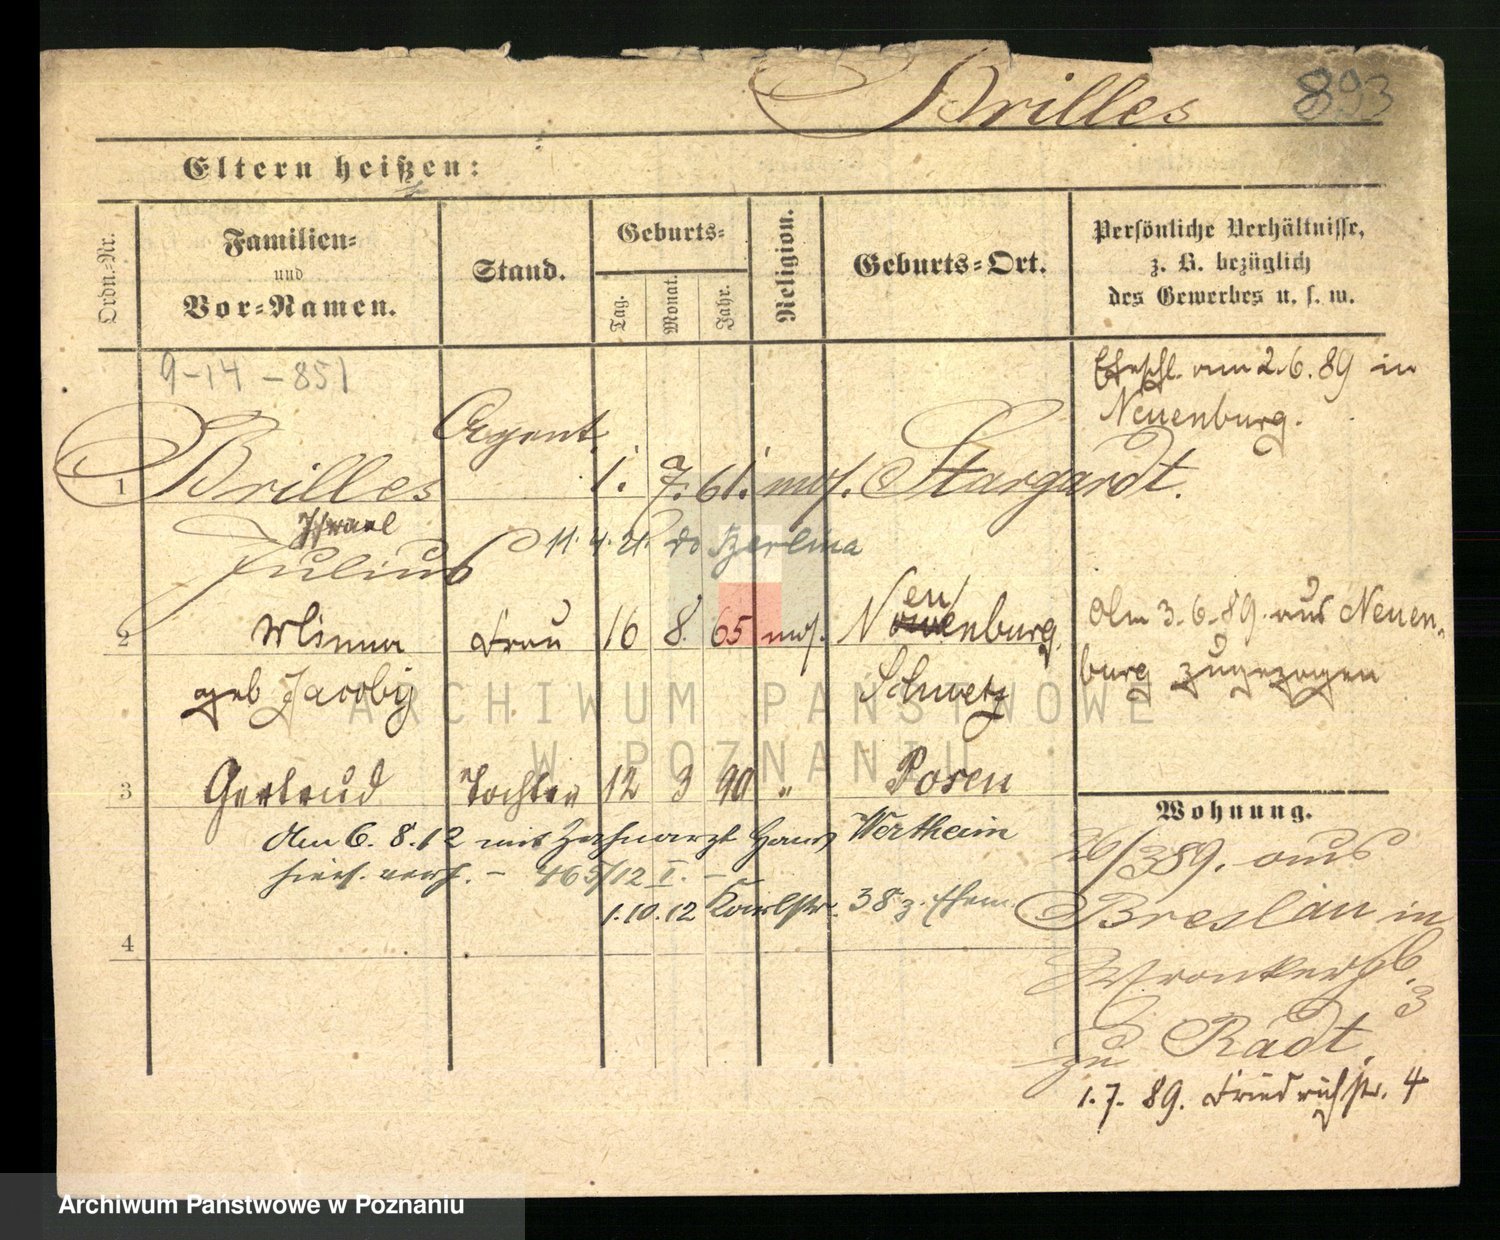 Brilles 893
Eltern heißen:
Ordn.-Nr.
Familien-
und
Vor-Namen.
Stand.
Geburts-
Tag.
Monat.
Jahr.
Religion.
Geburts-Ort.
Persönliche Verhältnisse,
z. B. bezüglich
des Gewerbes u. s. w.
9-14-851
Ehschl. am 2.6.89 in
Neuenburg.
Agent.
1 Brilles 1. 7. 61. mos. Stargardt.
Israel
Julius 11.4.21. do Berlina
2 Minna Frau 16 8. 65 mos. Neuenburg. Am 3.6.89. aus Neuen-
geb Jacoby Schwetz burg zugezogen
3 Gertrud Tochter 12 3 90 " Posen
Am 6.8.12 mit Zahnarzt Hans Wertheim
hier verh. - 465/12 I. -
1.10.12 Karlstr. 38 z. Ehem.
4
Wohnung.
26/3 89. aus
Breslau in
Wronkerstr.
3
zu Radt.
1.7.89. Friedrichstr. 4
ARCHIWUM PAŃSTWOWE
W POZNANIU
Archiwum Państwowe w Poznaniu